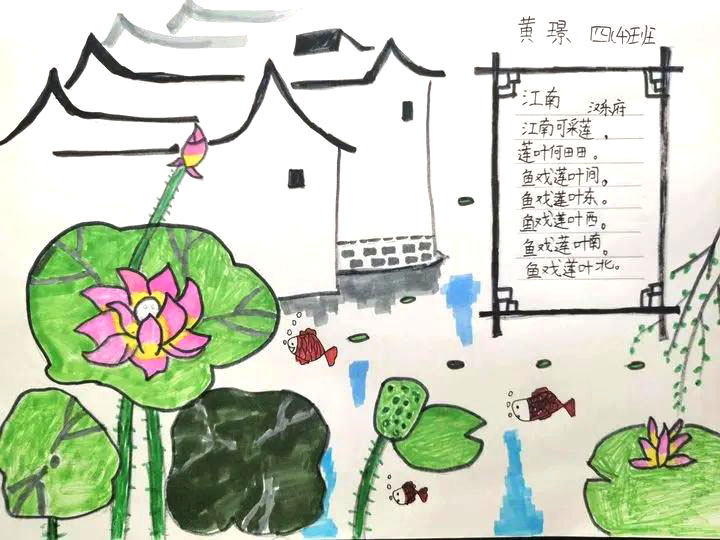 黄璟 四(4)班
江南 汉乐府
江南可采莲，
莲叶何田田。
鱼戏莲叶间，
鱼戏莲叶东。
鱼戏莲叶西。
鱼戏莲叶南。
鱼戏莲叶北。